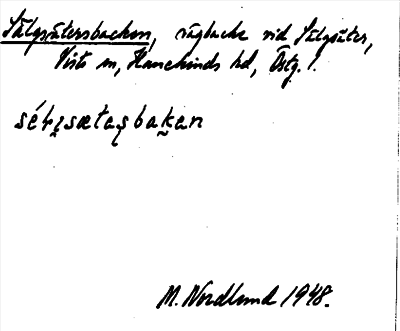 Sälgsätersbacken, vägbacke vid Sälgsäter,
Tirserum sn, Hanekinds hd, Östg. l.
séłi̜sætaʂbakan
M. Nordlund 1948.